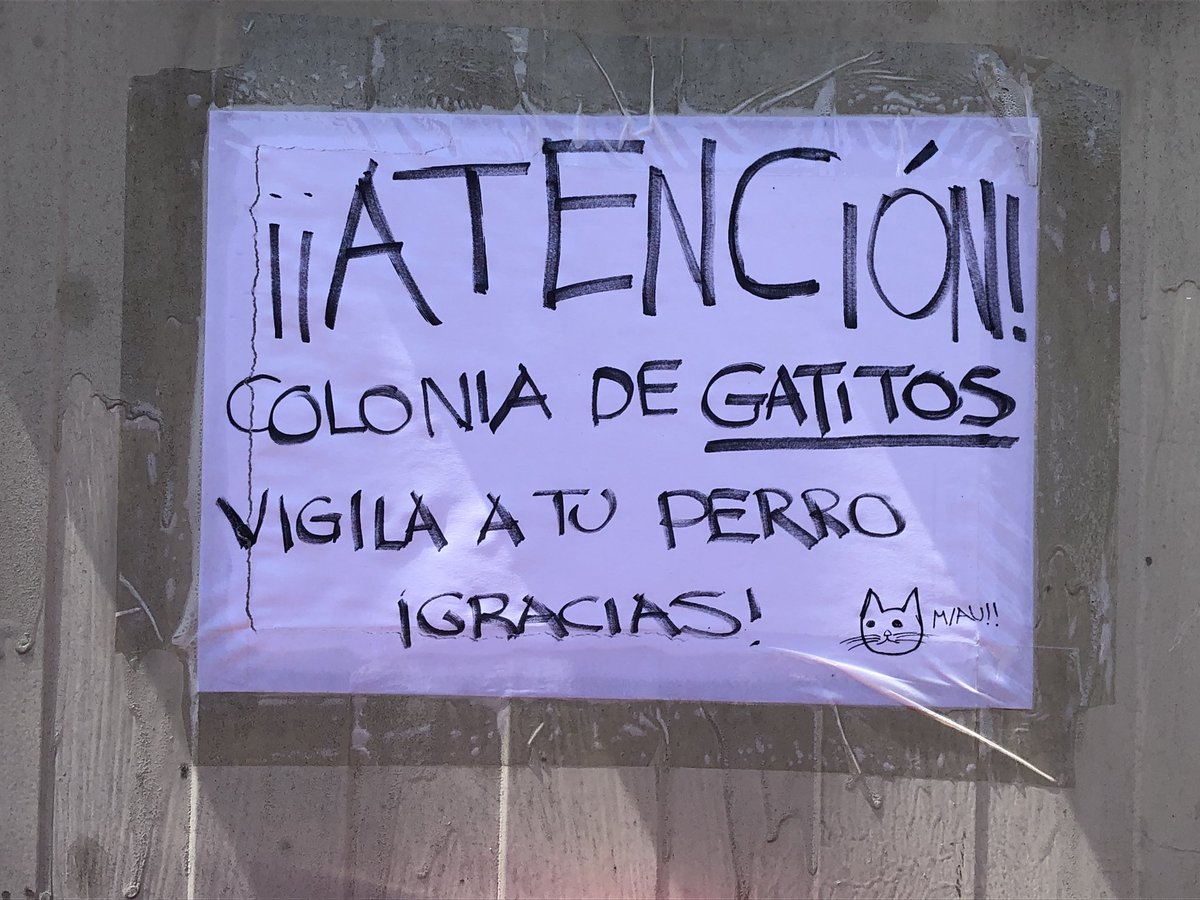 ¡¡ATENCIÓN!
COLONIA DE GATITOS
VIGILA A TU PERRO
¡GRACIAS!
MIAU!!